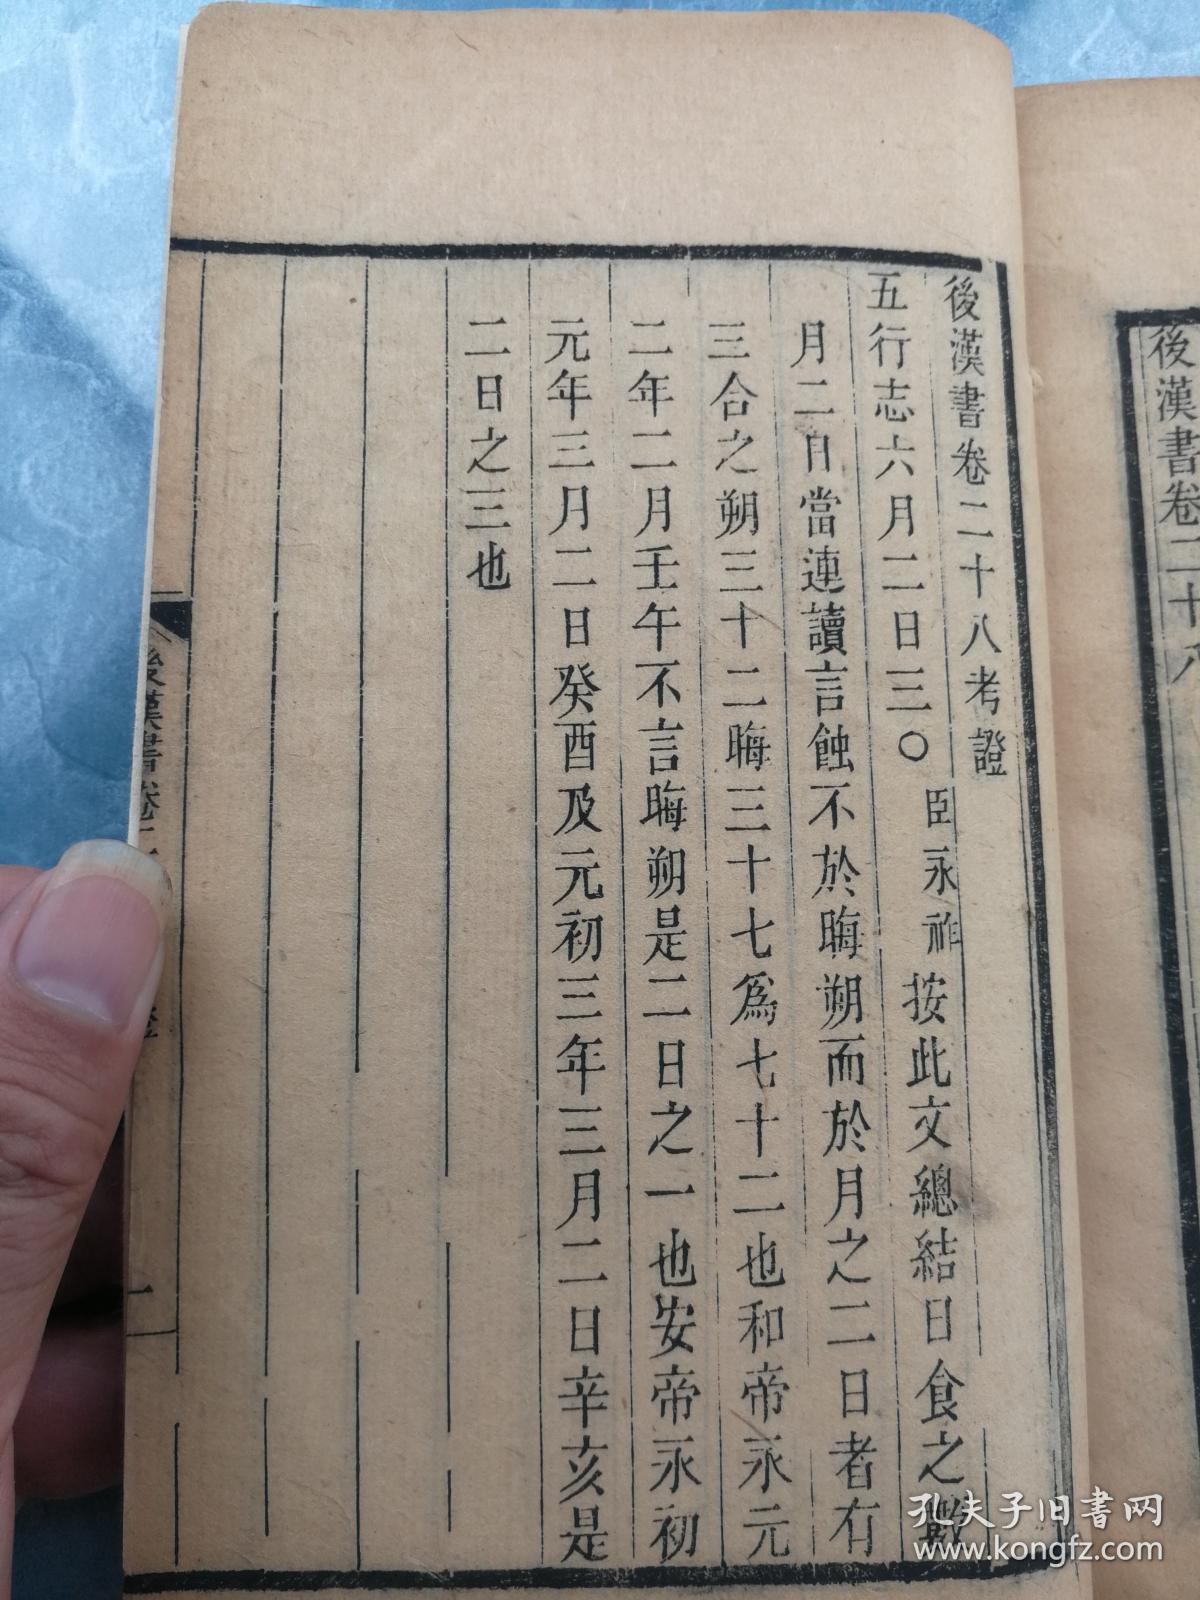 後漢書卷二十八
後漢書卷二十八考證
五行志六月二日三〇臣永祚按此文總結日食之數
月二日當連讀言蝕不於晦朔而於月之二日者有
三合之朔三十二晦三十七爲七十二也和帝永元
二年二月壬午不言晦朔是二日之一也安帝永初
元年三月二日癸酉及元初三年三月二日辛亥是
二日之三也
後漢書卷二
一
孔夫子旧书网
www.kongfz.com